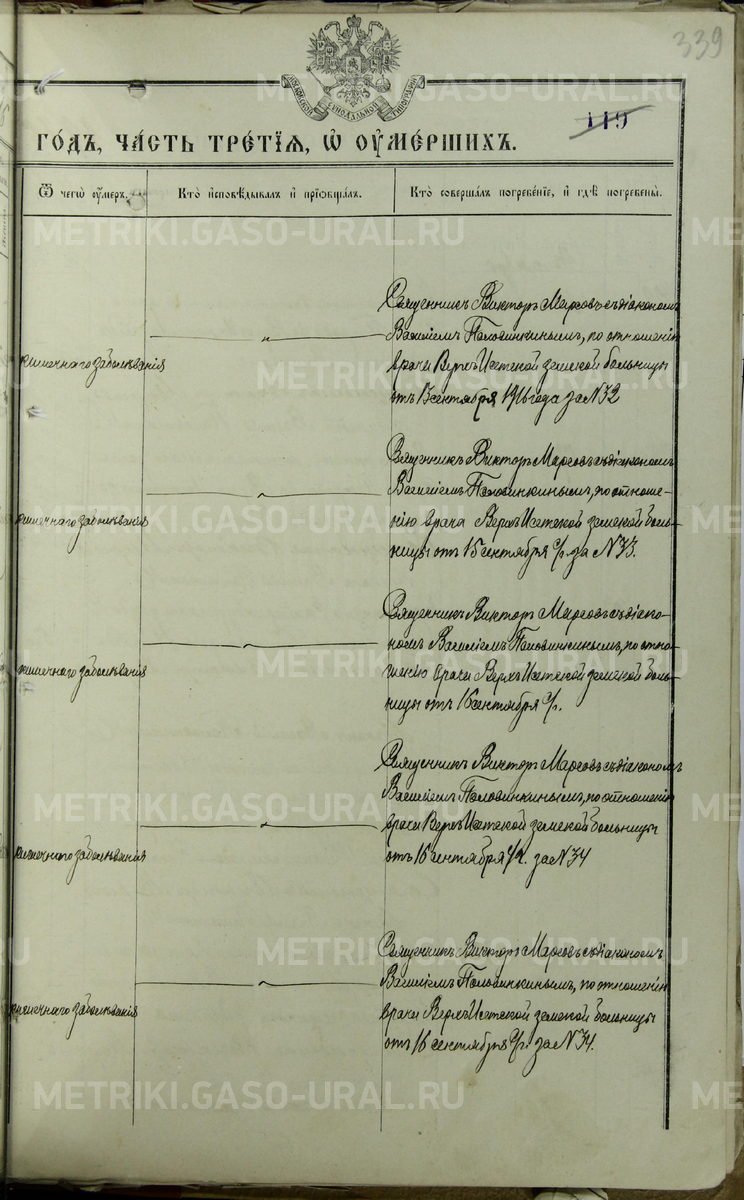 339
МОСКОВСКОЙ СѴНОДАЛЬНОЙ ТИПОГРАФІИ
119
ГО́ДЪ, ЧА́СТЬ ТРЕ́ТІѦ, Ѡ ОУМЕ́РШИХЪ.
Ѿ чегѡ̀ оу҆́меръ.
Кто̀ и҆сповѣ́дывалъ и҆ прїѡбща́лъ.
Кто̀ соверша́лъ погребе́нїе, и҆ гдѣ̀ погребены̀.
кишечнаго заболѣванія
"
Священникъ Викторъ Марсовъ съ діакономъ
Василіемъ Половинкинымъ, по отношенію
врача Верхъ Исетской земской больницы
отъ 15 сентября 1916 года за №32
кишечнаго заболѣванія
"
Священникъ Викторъ Марсовъ съ діакономъ
Василіемъ Половинкинымъ, по отноше-
нію врача Верхъ Исетской земской боль-
ницы отъ 15 сентября с/г. за №33.
кишечнаго заболѣванія
"
Священникъ Викторъ Марсовъ съ діако-
номъ Василіемъ Половинкинымъ, по отно-
шенію врача Верхъ Исетской земской боль-
ницы отъ 16 сентября с/г.
кишечнаго заболѣванія
"
Священникъ Викторъ Марсовъ съ діакономъ
Василіемъ Половинкинымъ, по отношенію
врача Верхъ Исетской земской больницы
отъ 16 сентября с/г. за №34
кишечнаго заболѣванія
"
Священникъ Викторъ Марсовъ съ діакономъ
Василіемъ Половинкинымъ, по отношенію
врача Верхъ Исетской земской больницы
отъ 16 сентября с/г. за №34.
METRIKI.GASO-URAL.RU